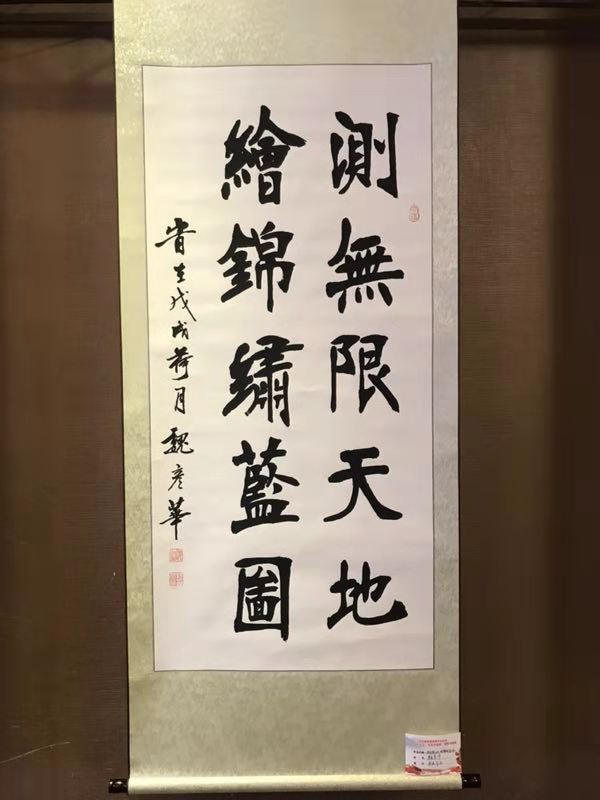 測無限天地
繪錦繡藍圖
時在戊戌荷月魏彥華